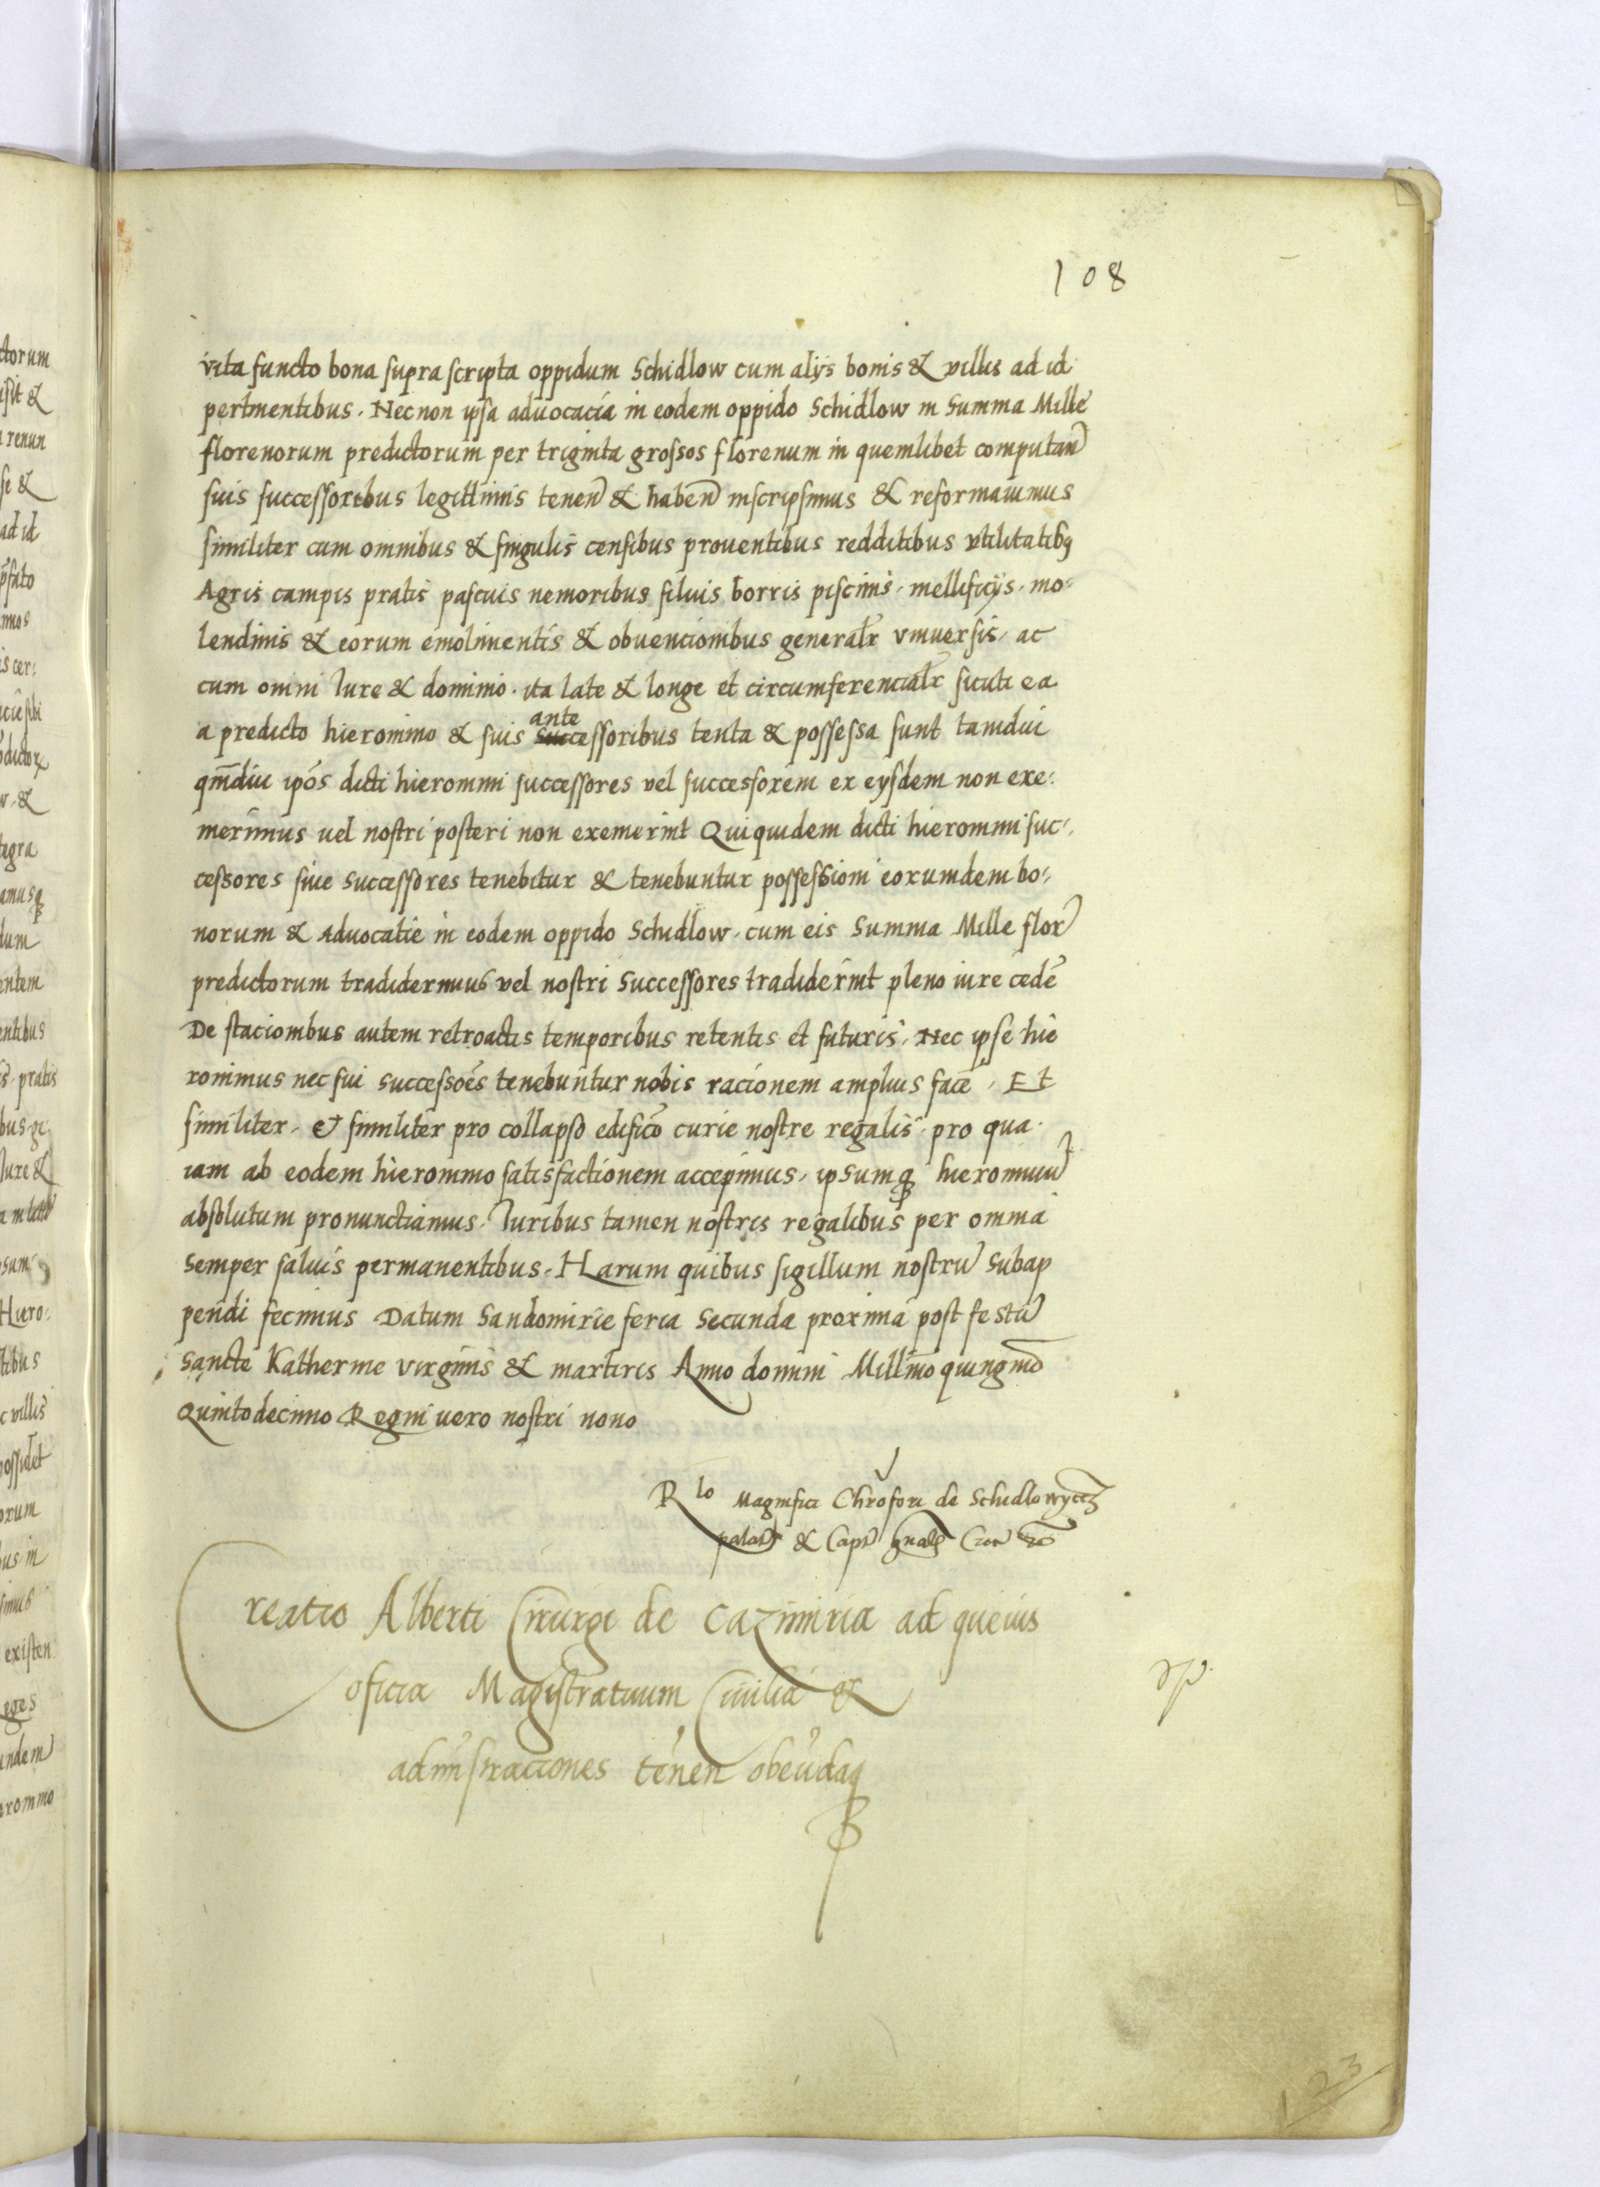 108
vita functo bona supra scripta oppidum Schidlow cum alijs bonis & villis ad id
pertinentibus. Necnon ipsa advocacia in eodem oppido Schidlow in Summa Mille
florenorum predictorum per triginta grossos florenum in quemlibet computan̄
suis successoribus legittimis tenen̄ & haben̄ inscripsimus & reformauimus
similiter cum omnibus & singulis censibus prouentibus redditibus vtilitatibq
Agris campis pratis pascuis nemoribus siluis borris piscinis. mellificijs. mo-
lendinis & eorum emolimentis & obuencionibus generalr̄ vniuersis. ac
cum omni Iure & dominio. ita late & longe et circumferencialr̄ sicuti ea
a predicto hieronimo & suis antecessoribus tenta & possessa sunt tamdui
qm̄diu ipōs dicti hieronimi successores vel successorem ex eysdem non exe-
merimus uel nostri posteri non exemerint Quiquidem dicti hieronimi suc-
cessores siue successores tenebitur & tenebuntur possessioni eorumdem bo-
norum & Aduocatie in eodem oppido Schidlow. cum eis Summa Mille flor̄
predictorum tradiderimus vel nostri Successores tradiderint pleno iure cedē
De stacionibus autem retroactis temporibus retentis et futuris. Nec ipse hie
ronimus nec sui successoēs tenebuntur nobis racionem amplius facē. Et
similiter. & similiter pro collapso edificō curie nostre regalis. pro qua.
iam ab eodem hieronimo satisfactionem accepimus. ipsumq hieronimū
absolutum pronunctiamus. Iuribus tamen nostris regalibus per omnia
semper saluis permanentibus. Harum quibus sigillum nostrū Subap
pendi fecimus Datum Sandomirie feria Secunda proxima post festū
Sancte Katherine virginis & martiris Anno domini Millīmo quingmō
Quintodecimo Regni uero nostri nono
Rlo Magnifici Chrōfori de Schidlowycz
palat̄ & Cap̄
Creatio Alberti Cirurgi de Cazimiria ad queuis
oficia Magistratuum Ciuilia &
administraciones tenen̄ obeūdaq
23